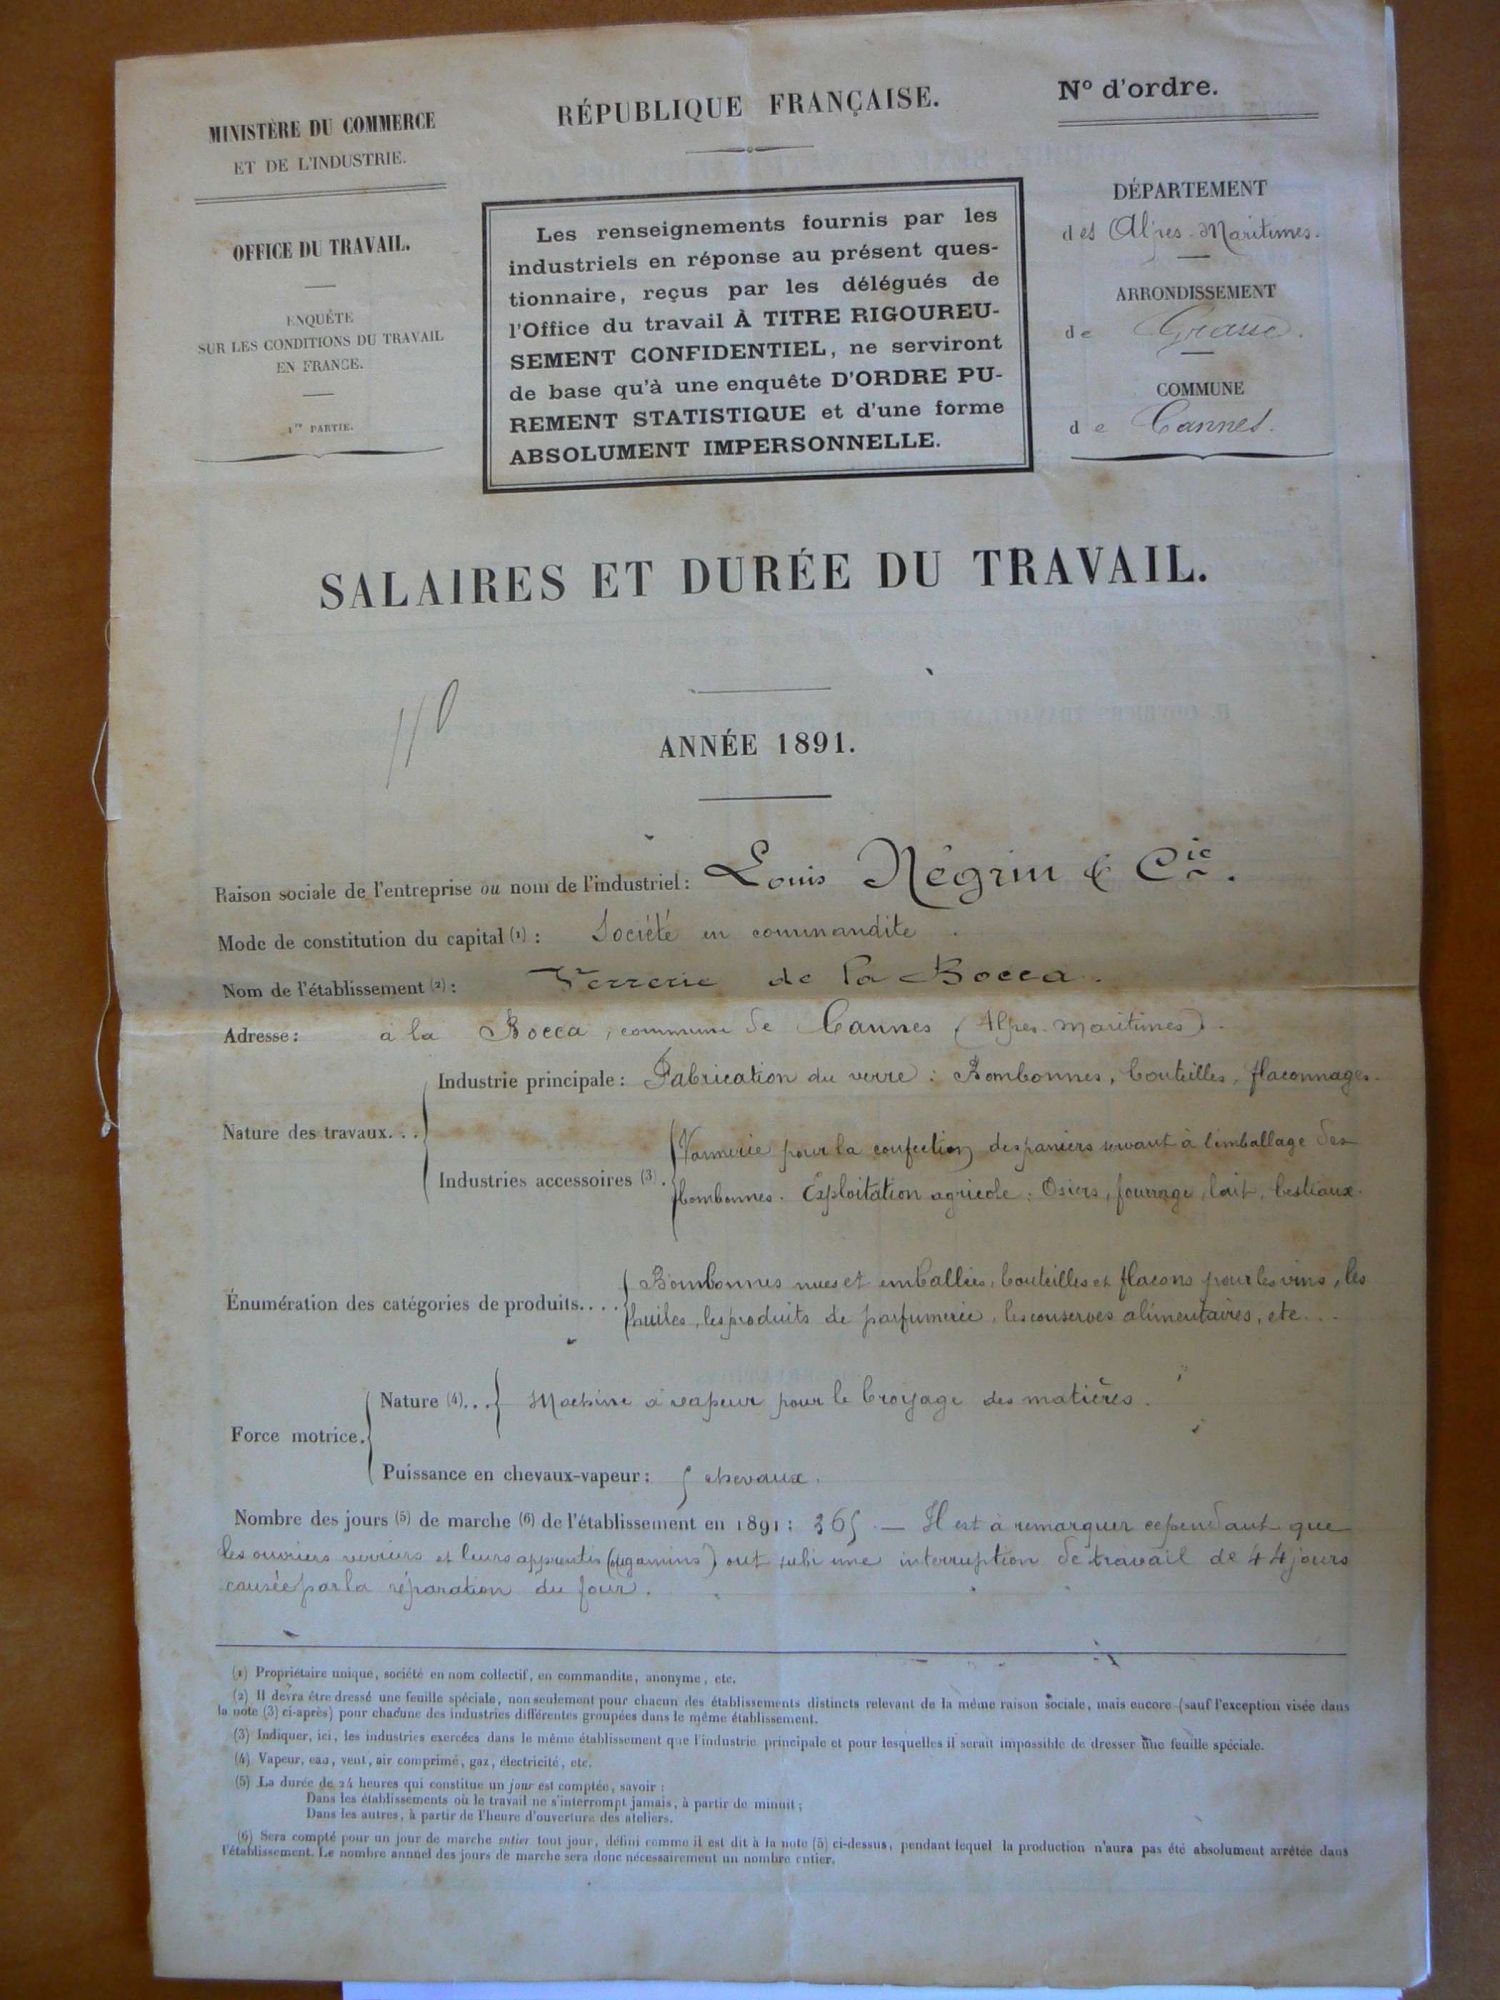 MINISTÈRE DU COMMERCE
ET DE L'INDUSTRIE.
OFFICE DU TRAVAIL.
ENQUÊTE
SUR LES CONDITIONS DU TRAVAIL
EN FRANCE.
1re PARTIE.
RÉPUBLIQUE FRANÇAISE.
Les renseignements fournis par les
industriels en réponse au présent ques-
tionnaire, reçus par les délégués de
l'Office du travail À TITRE RIGOUREU-
SEMENT CONFIDENTIEL, ne serviront
de base qu'à une enquête D'ORDRE PU-
REMENT STATISTIQUE et d'une forme
ABSOLUMENT IMPERSONNELLE.
N° d'ordre.
DÉPARTEMENT
des Alpes-Maritimes.
ARRONDISSEMENT
de Grasse.
COMMUNE
de Cannes.
SALAIRES ET DURÉE DU TRAVAIL.
ANNÉE 1891.
Raison sociale de l'entreprise ou nom de l'industriel: Louis Négrin & Cie.
Mode de constitution du capital (1): Société en commandite.
Nom de l'établissement (2): Verrerie de la Bocca.
Adresse: à la Bocca, commune de Cannes (Alpes-Maritimes).
Industrie principale: Fabrication du verre: Bombonnes, bouteilles, flaconnages.
Nature des travaux...
Vannerie pour la confection des paniers servant à l'emballage des
Industries accessoires (3).
bombonnes. Exploitation agricole: Osiers, fourrage, lait, bestiaux.
Bombonnes nues et emballées, bouteilles et flacons pour les vins, les
Énumération des catégories de produits....
huiles, les produits de parfumerie, les conserves alimentaires, etc...
Nature (4)... Machine à vapeur pour le broyage des matières.
Force motrice.
Puissance en chevaux-vapeur: 5 chevaux.
Nombre des jours (5) de marche (6) de l'établissement en 1891: 365. — Il est à remarquer cependant que
les ouvriers verriers et leurs apprentis (ou gamins) ont subi une interruption de travail de 44 jours
causée par la réparation du four.
(1) Propriétaire unique, société en nom collectif, en commandite, anonyme, etc.
(2) Il devra être dressé une feuille spéciale, non seulement pour chacun des établissements distincts relevant de la même raison sociale, mais encore (sauf l'exception visée dans
la note (3) ci-après) pour chacune des industries différentes groupées dans le même établissement.
(3) Indiquer, ici, les industries exercées dans le même établissement que l'industrie principale et pour lesquelles il serait impossible de dresser une feuille spéciale.
(4) Vapeur, eau, vent, air comprimé, gaz, électricité, etc.
(5) La durée de 24 heures qui constitue un jour est comptée, savoir:
Dans les établissements où le travail ne s'interrompt jamais, à partir de minuit;
Dans les autres, à partir de l'heure d'ouverture des ateliers.
(6) Sera compté pour un jour de marche entier tout jour, défini comme il est dit à la note (5) ci-dessus, pendant lequel la production n'aura pas été absolument arrêtée dans
l'établissement. Le nombre annuel des jours de marche sera donc nécessairement un nombre entier.